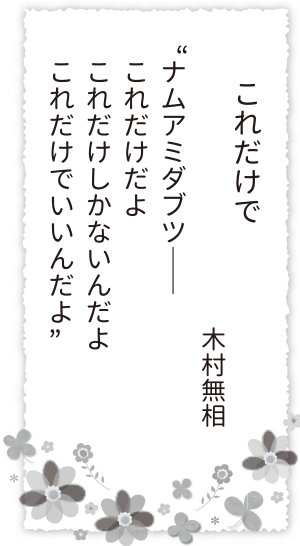 これだけで
木村無相
“ナムアミダブツ――
これだけだよ
これだけしかないんだよ
これだけでいいんだよ”